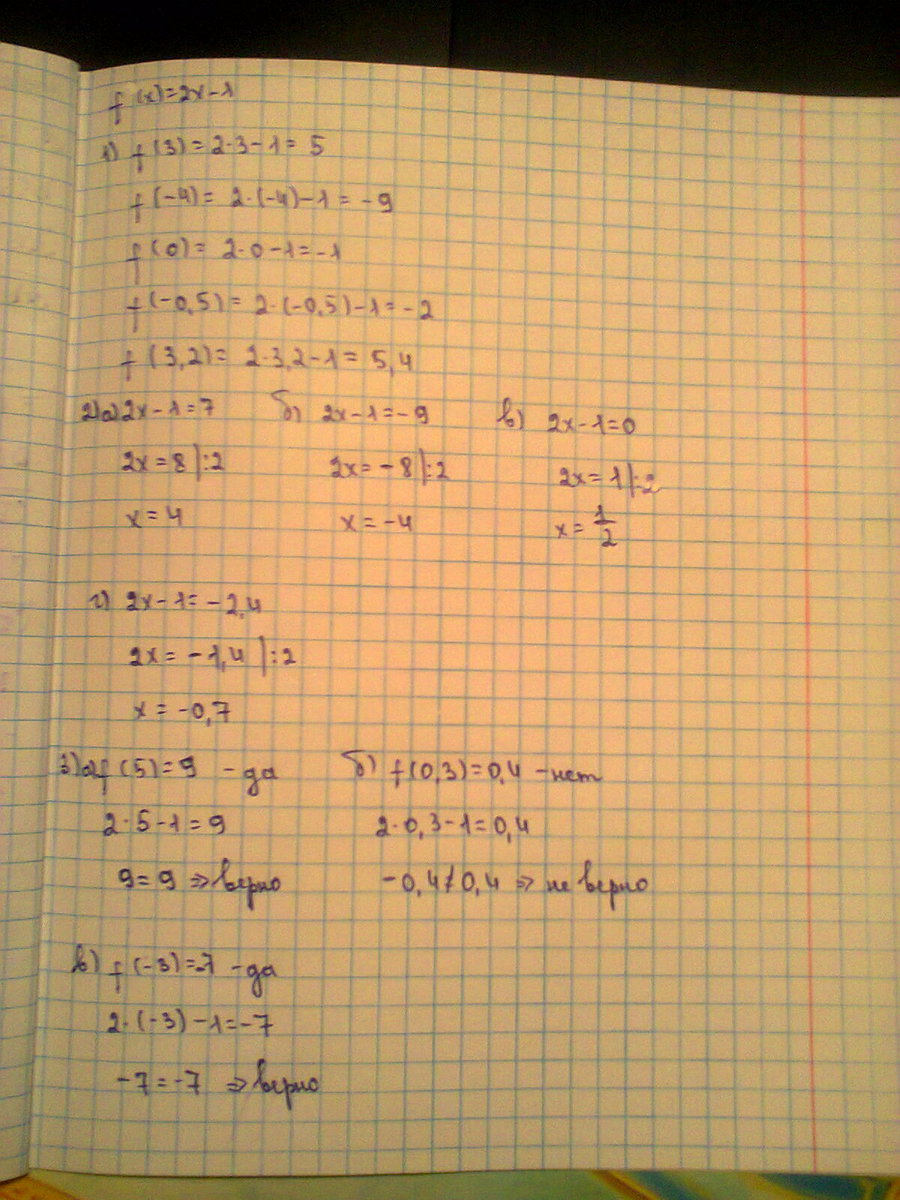 f(x)=2x-1
1) f(3)=2·3-1=5
f(-4)=2·(-4)-1=-9
f(0)=2·0-1=-1
f(-0,5)=2·(-0,5)-1=-2
f(3,2)=2·3,2-1=5,4
2) а) 2x-1=7 б) 2x-1=-9 в) 2x-1=0
2x=8|:2 2x=-8|:2 2x=1|:2
x=4 x=-4 x=1/2
г) 2x-1=-2,4
2x=-1,4|:2
x=-0,7
3) а) f(5)=9 - да б) f(0,3)=0,4 - нет
2·5-1=9 2·0,3-1=0,4
9=9 ⇒ верно -0,4≠0,4 ⇒ не верно
в) f(-3)=-7 - да
2·(-3)-1=-7
-7=-7 ⇒ верно